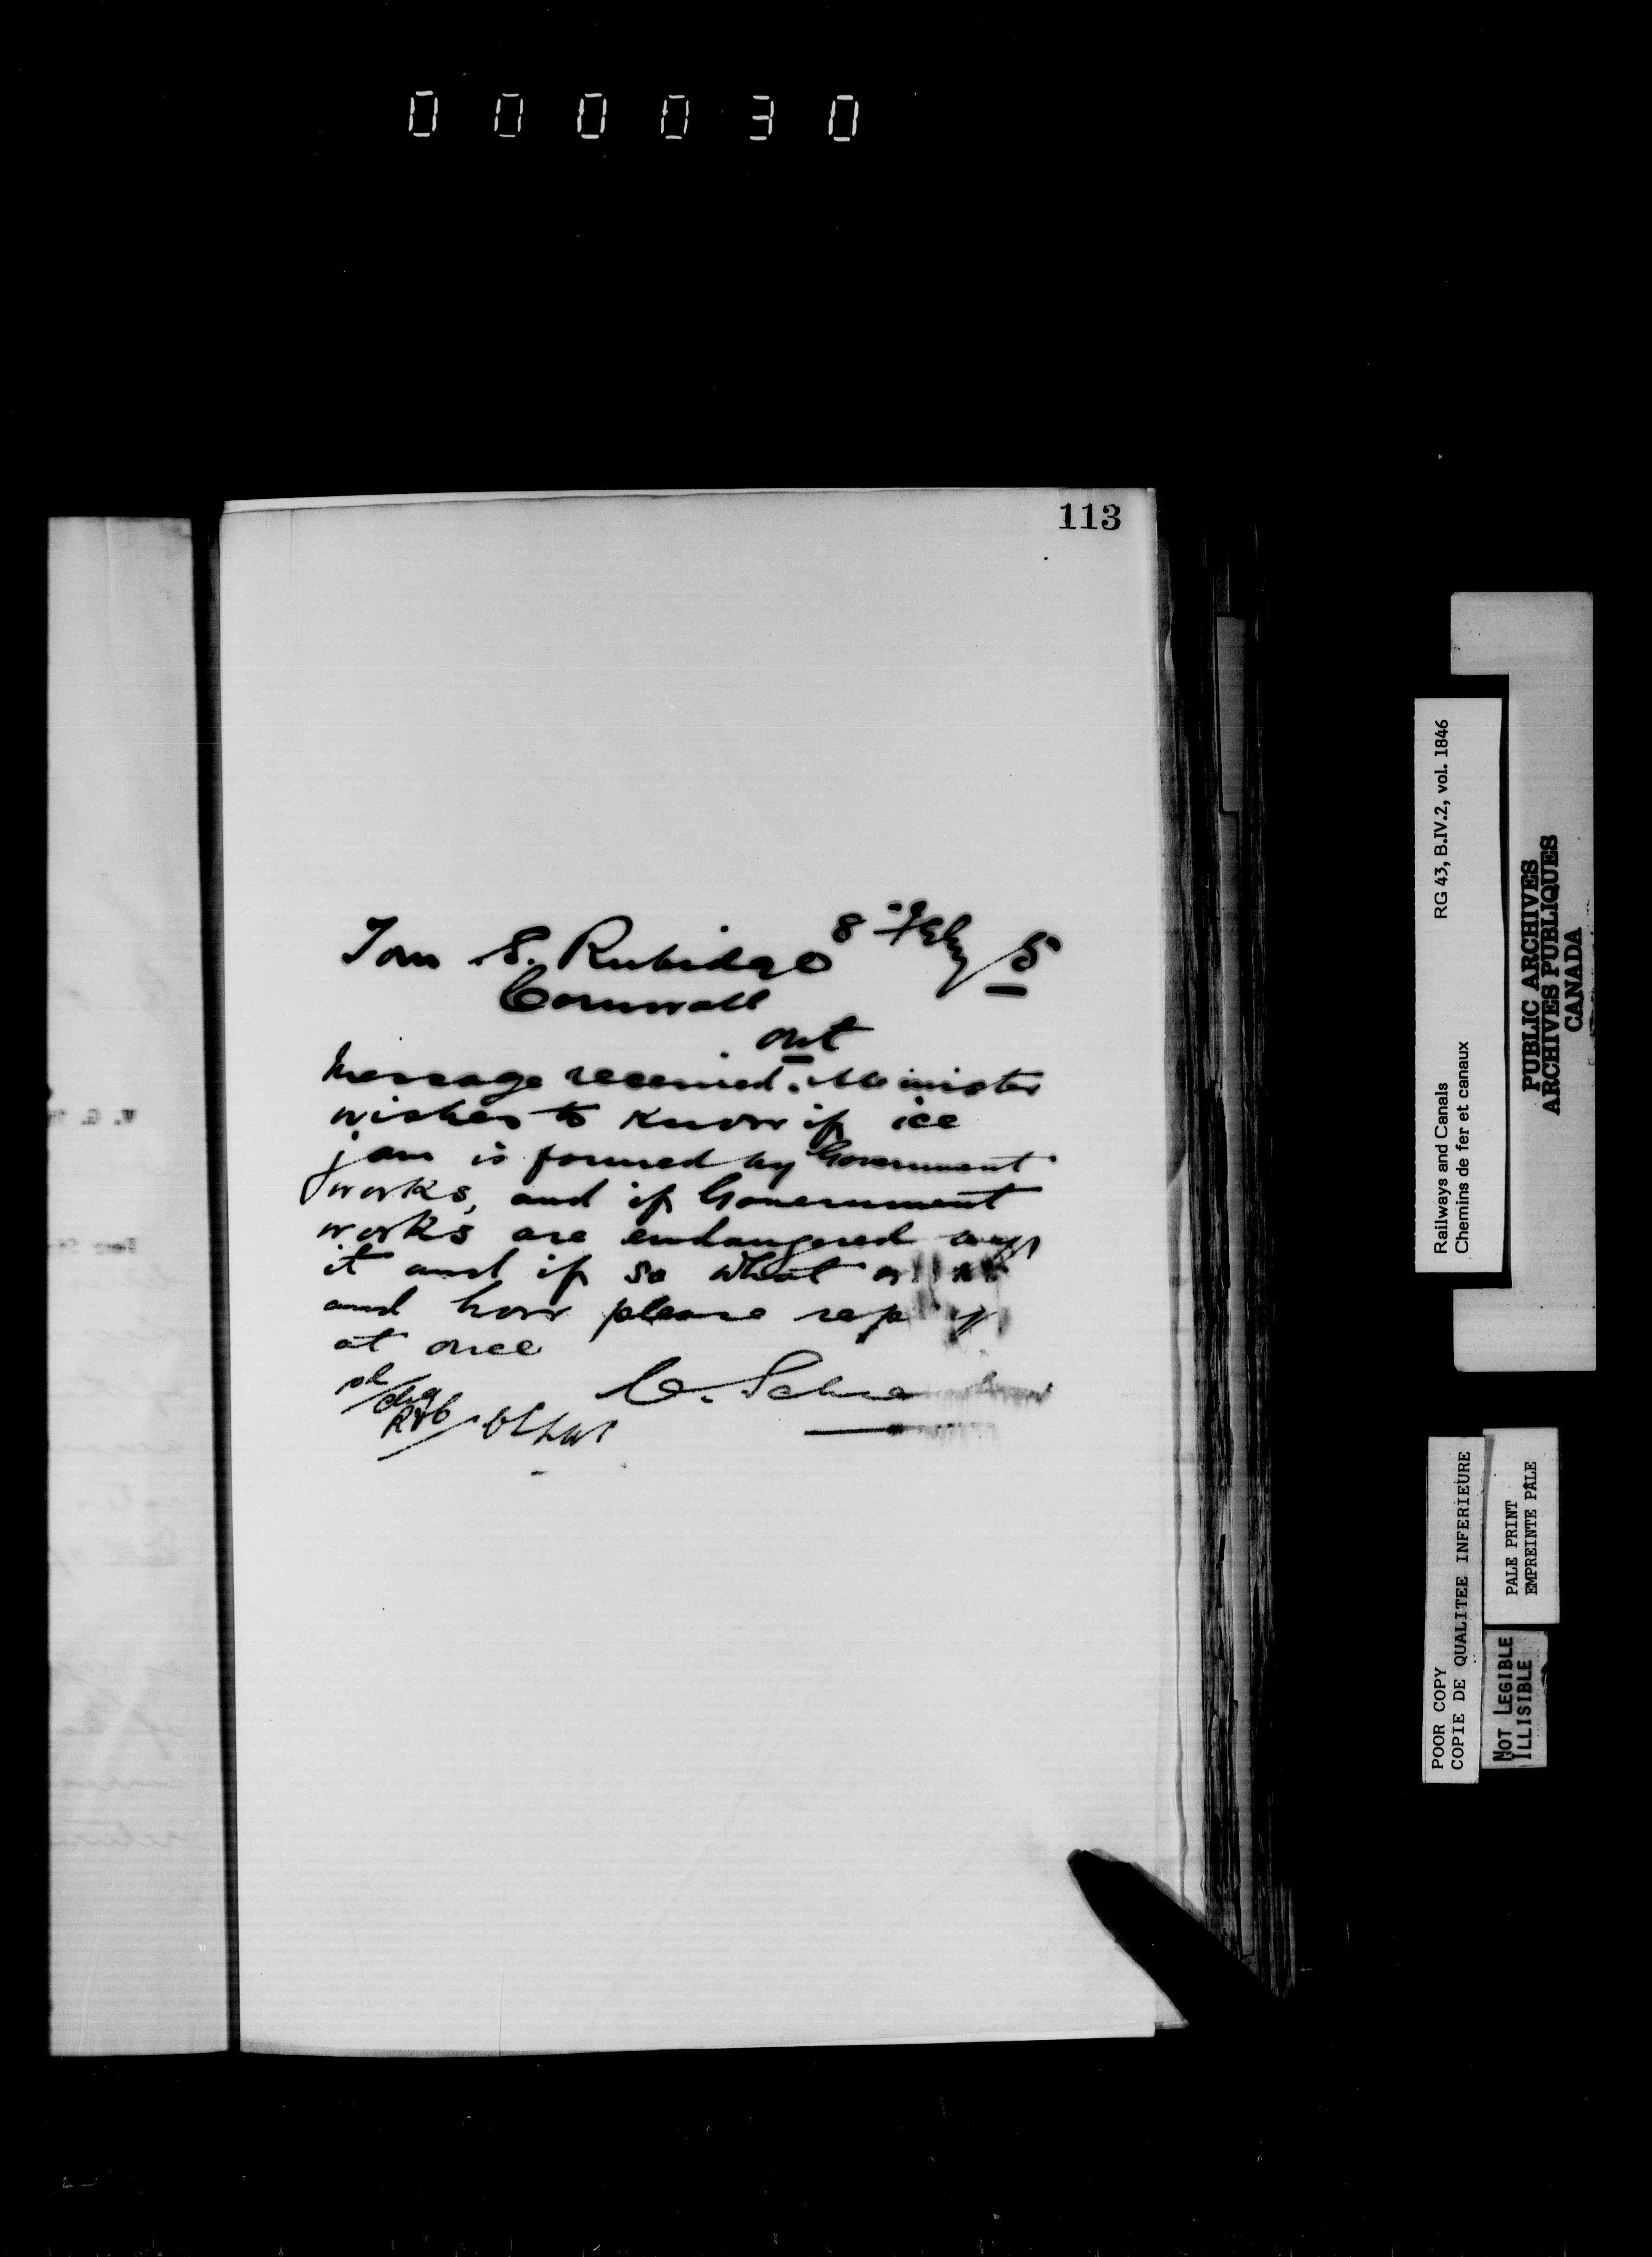 000030
113
8th Feby / 5
Tom S. Rubidge
Cornwall
Ont
Message received. Minister
wishes to know if ice
jam is formed by Government
works, and if Government
works are endangered by
it and if so what
and how please reply
at once
C. Schre
RG 43, B.IV.2, vol. 1846
Railways and Canals
Chemins de fer et canaux
PUBLIC ARCHIVES
ARCHIVES PUBLIQUES
CANADA
POOR COPY
COPIE DE QUALITEE INFERIEURE
PALE PRINT
EMPREINTE PALE
NOT LEGIBLE
ILLISIBLE